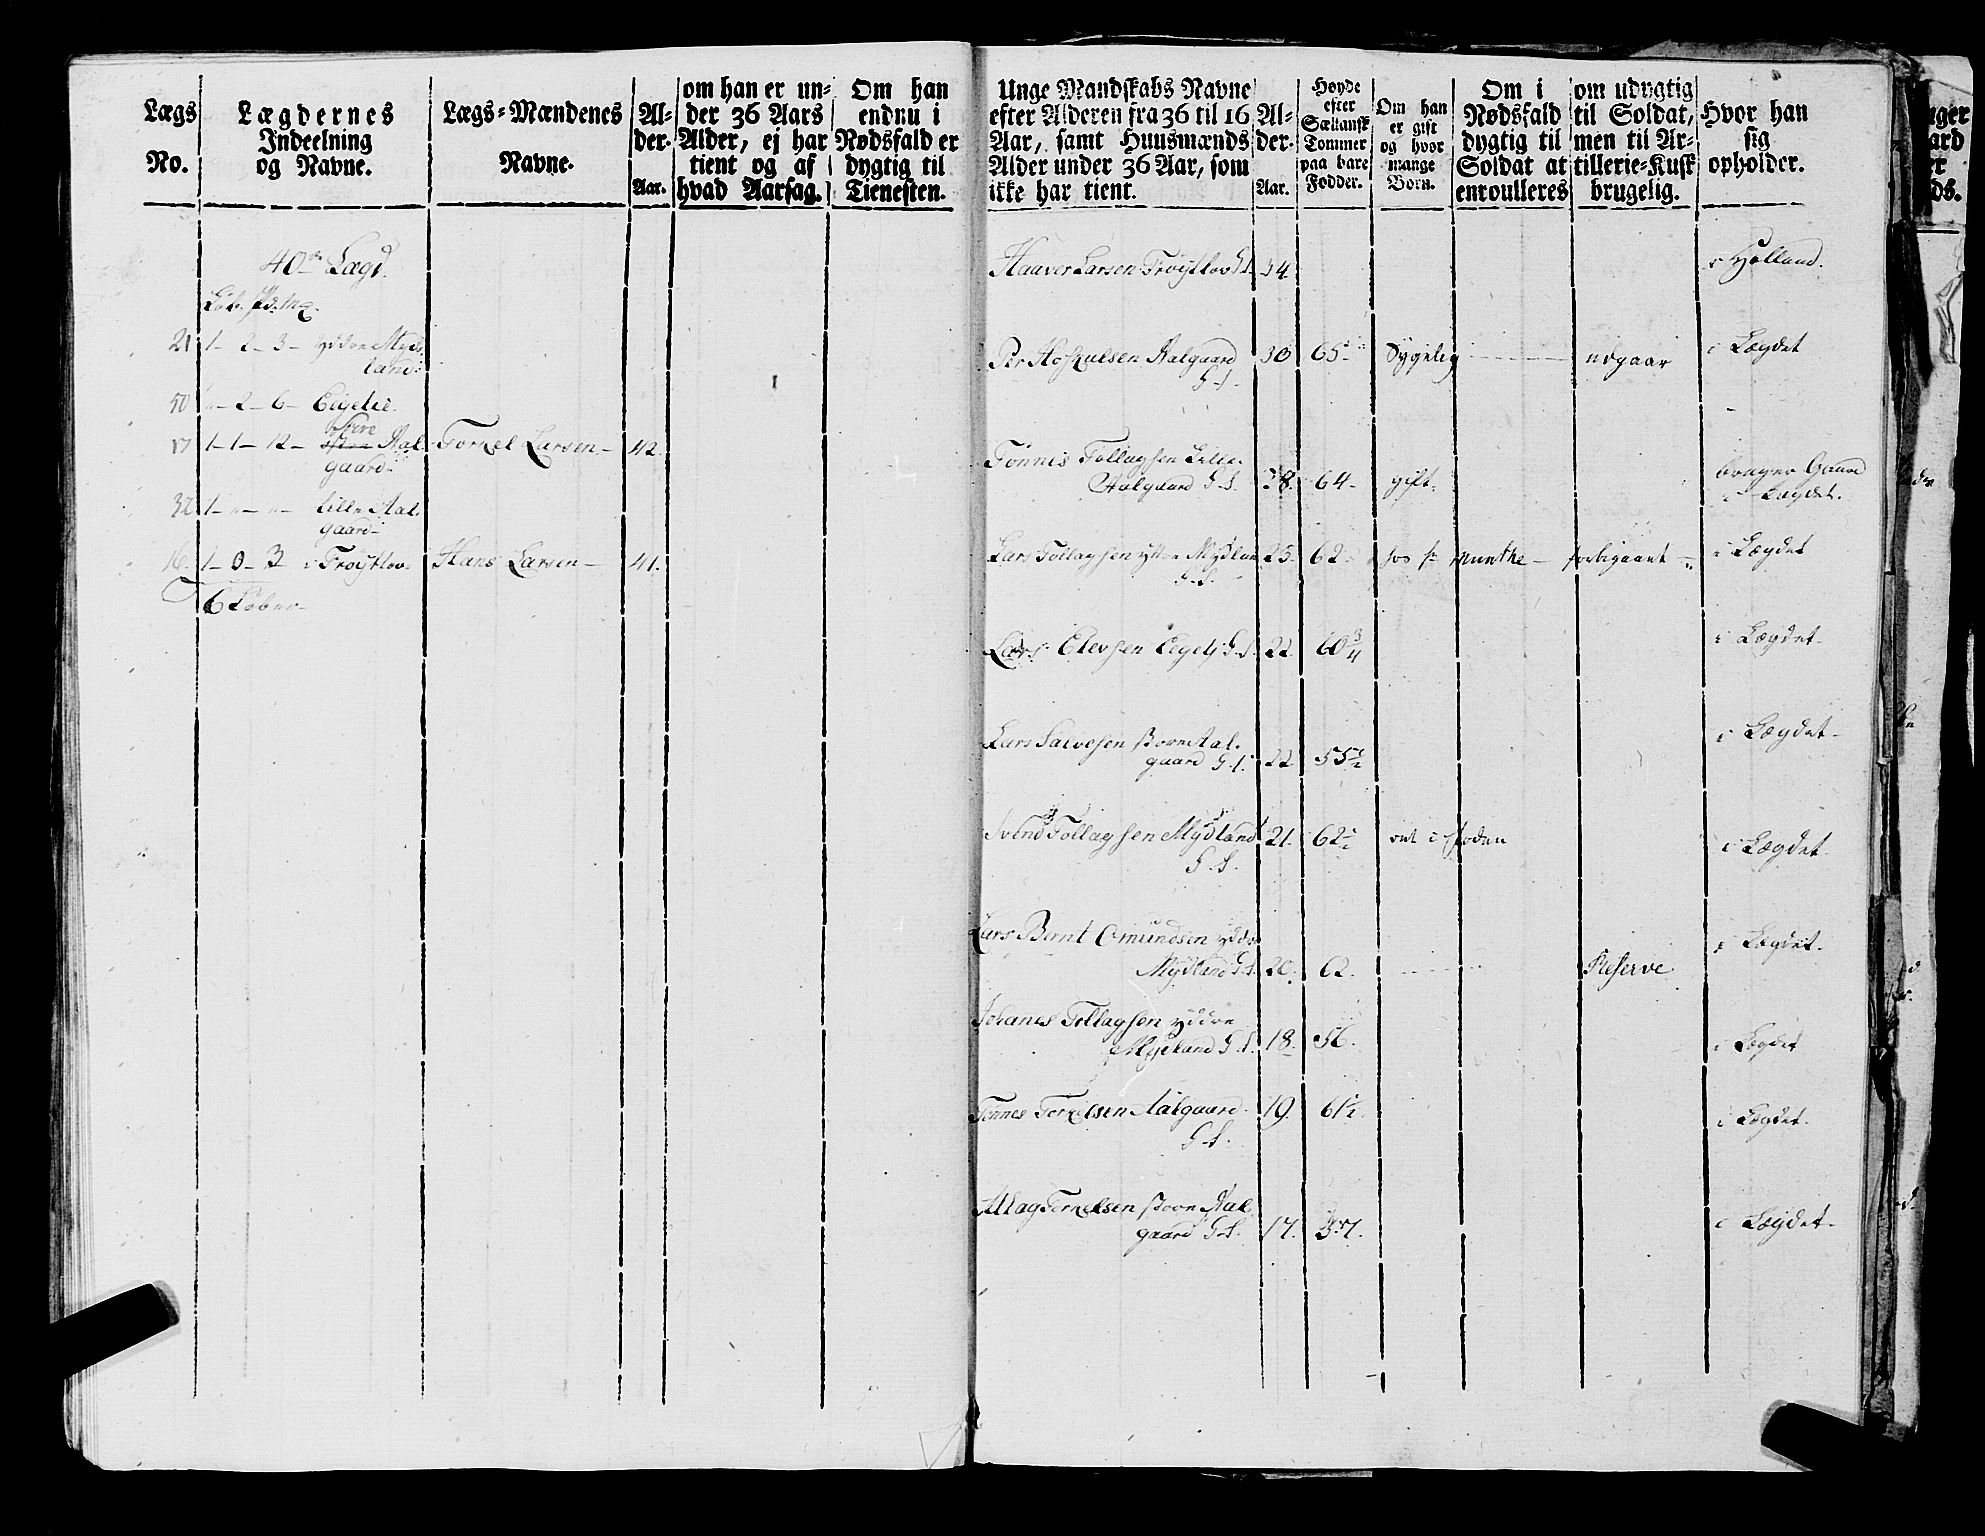 Lægs No.
Lægdernes Indeelning og Navne.
Lægs-Mændenes Navne.
Alder. Aar.
om han er under 36 Aars Alder, ej har tient og af hvad Aarsag.
Om han endnu i Nødsfald er dygtig til Tienesten.
40de Lægd.
21 1- 2- 3- yddre Mydland.
50 - 2- 6- Eigelie.
17 1- 1- 12- store Aalgaard. Torkel Larsen - 42.
32 1- - - lille Aalgaard.
16. 1- 0- 3 i Frøytlov. Hans Larsen - 41.
6 Løber
Unge Mandskabs Navne efter Alderen fra 36 til 16 Aar, samt Huusmænds Alder under 36 Aar, som ikke har tient.
Alder. Aar.
Høyde efter Sællansk Tommer paa bare Fødder.
Om han er gift og hvor mange Børn.
Om i Nødsfald dygtig til Soldat at enroulleres
om udygtig til Soldat, men til Artillerie-Kusk brugelig.
Hvor han sig opholder.
Haaver Larsen Frøytlov G. S. 34. i Holland.
Per Hoskulsen Aalgaard 30 65 Sygelig udgaar i Lægdet
G. S.
Tønnis Tollagsen Lille
Aalgaard G. S. 28. 64 - gift. bruger Gaard
i Lægdet.
Lars Tollagsen ytre Mydland 25. 62 hos Munthe - forbigaaet - i Lægdet
G. S.
Lars Elevsen Eegelj G. S. 22. 60 3/4 i Lægdet
Lars Salvesen store Aal-
gaard G. S. 22. 55 1/2 i Lægdet -
Svend Tollagsen Mydland 21. 62 1/2 ont i Hoden i Lægdet.
G. S.
Lars Bernt Omundsen yddre
Mydland G. S. 20. 62. Reserve i Lægdet.
Johanes Tollagsen yddre
Mydland G. S. 18. 56. i Lægdet
Tønnes Torkelsen Aalgaard 19. 61 1/2. i Lægdet.
G. S.
Atlag Torkelsen store Aal
gaard G. S. 17. 57. i Lægdet -